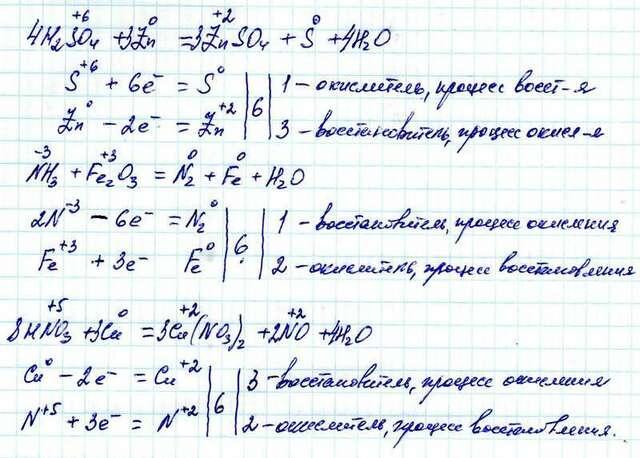 +6 0 +2 0
4H₂SO₄ + 3Zn = 3ZnSO₄ + S + 4H₂O
S⁺⁶ + 6e⁻ = S⁰ | 6 | 1 – окислитель, процесс восст-я
Zn⁰ – 2e⁻ = Zn⁺² | 3 – восстановитель, процесс окисл-я
-3 +3 0 0
NH₃ + Fe₂O₃ = N₂ + Fe + H₂O
2N⁻³ – 6e⁻ = N₂⁰ | 6 | 1 – восстановитель, процесс окисления
Fe⁺³ + 3e⁻ Fe⁰ | 2 – окислитель, процесс восстановления
+5 0 +2 +2
8HNO₃ + 3Cu = 3Cu(NO₃)₂ + 2NO + 4H₂O
Cu⁰ – 2e⁻ = Cu⁺² | 6 | 3 – восстановитель, процесс окисления
N⁺⁵ + 3e⁻ = N⁺² | 2 – окислитель, процесс восстановления.